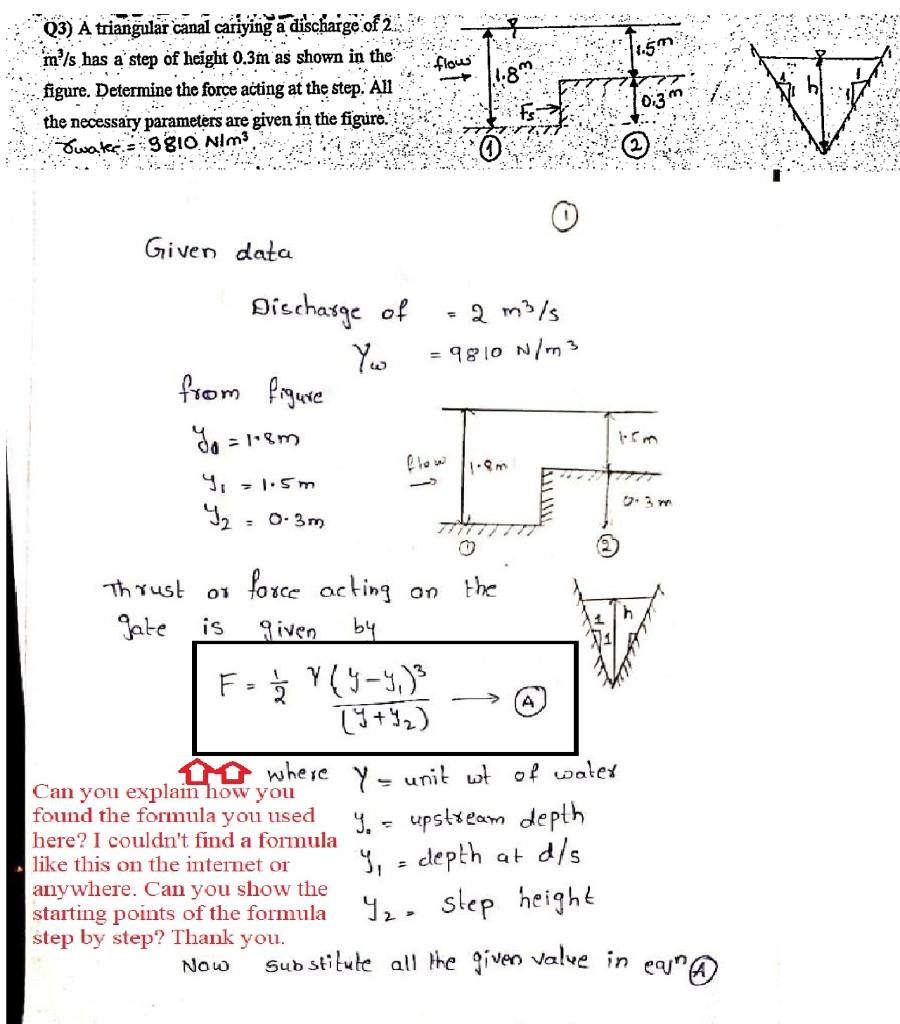 Q3) A triangular canal cariying a discharge of 2
m³/s has a step of height 0.3m as shown in the
figure. Determine the force acting at the step. All
the necessary parameters are given in the figure.
γwater = 9810 N/m³.
flow
1.8m
1.5m
Fs
0.3m
1
2
1
1
h
1
1
1
Given data
Discharge of = 2 m³/s
γw = 9810 N/m³
from figure
y0 = 1.8m
y1 = 1.5m
y2 = 0.3m
flow
1.8m
1.5m
0.3m
1
2
Thrust or force acting on the
gate is given by
1
1
h
F = 1/2 γ(y-y1)³/(y+y2) → A
where γ = unit wt of water
y0 = upstream depth
y1 = depth at d/s
y2 = step height
Can you explain how you
found the formula you used
here? I couldn't find a formula
like this on the internet or
anywhere. Can you show the
starting points of the formula
step by step? Thank you.
Now substitute all the given value in eqn A